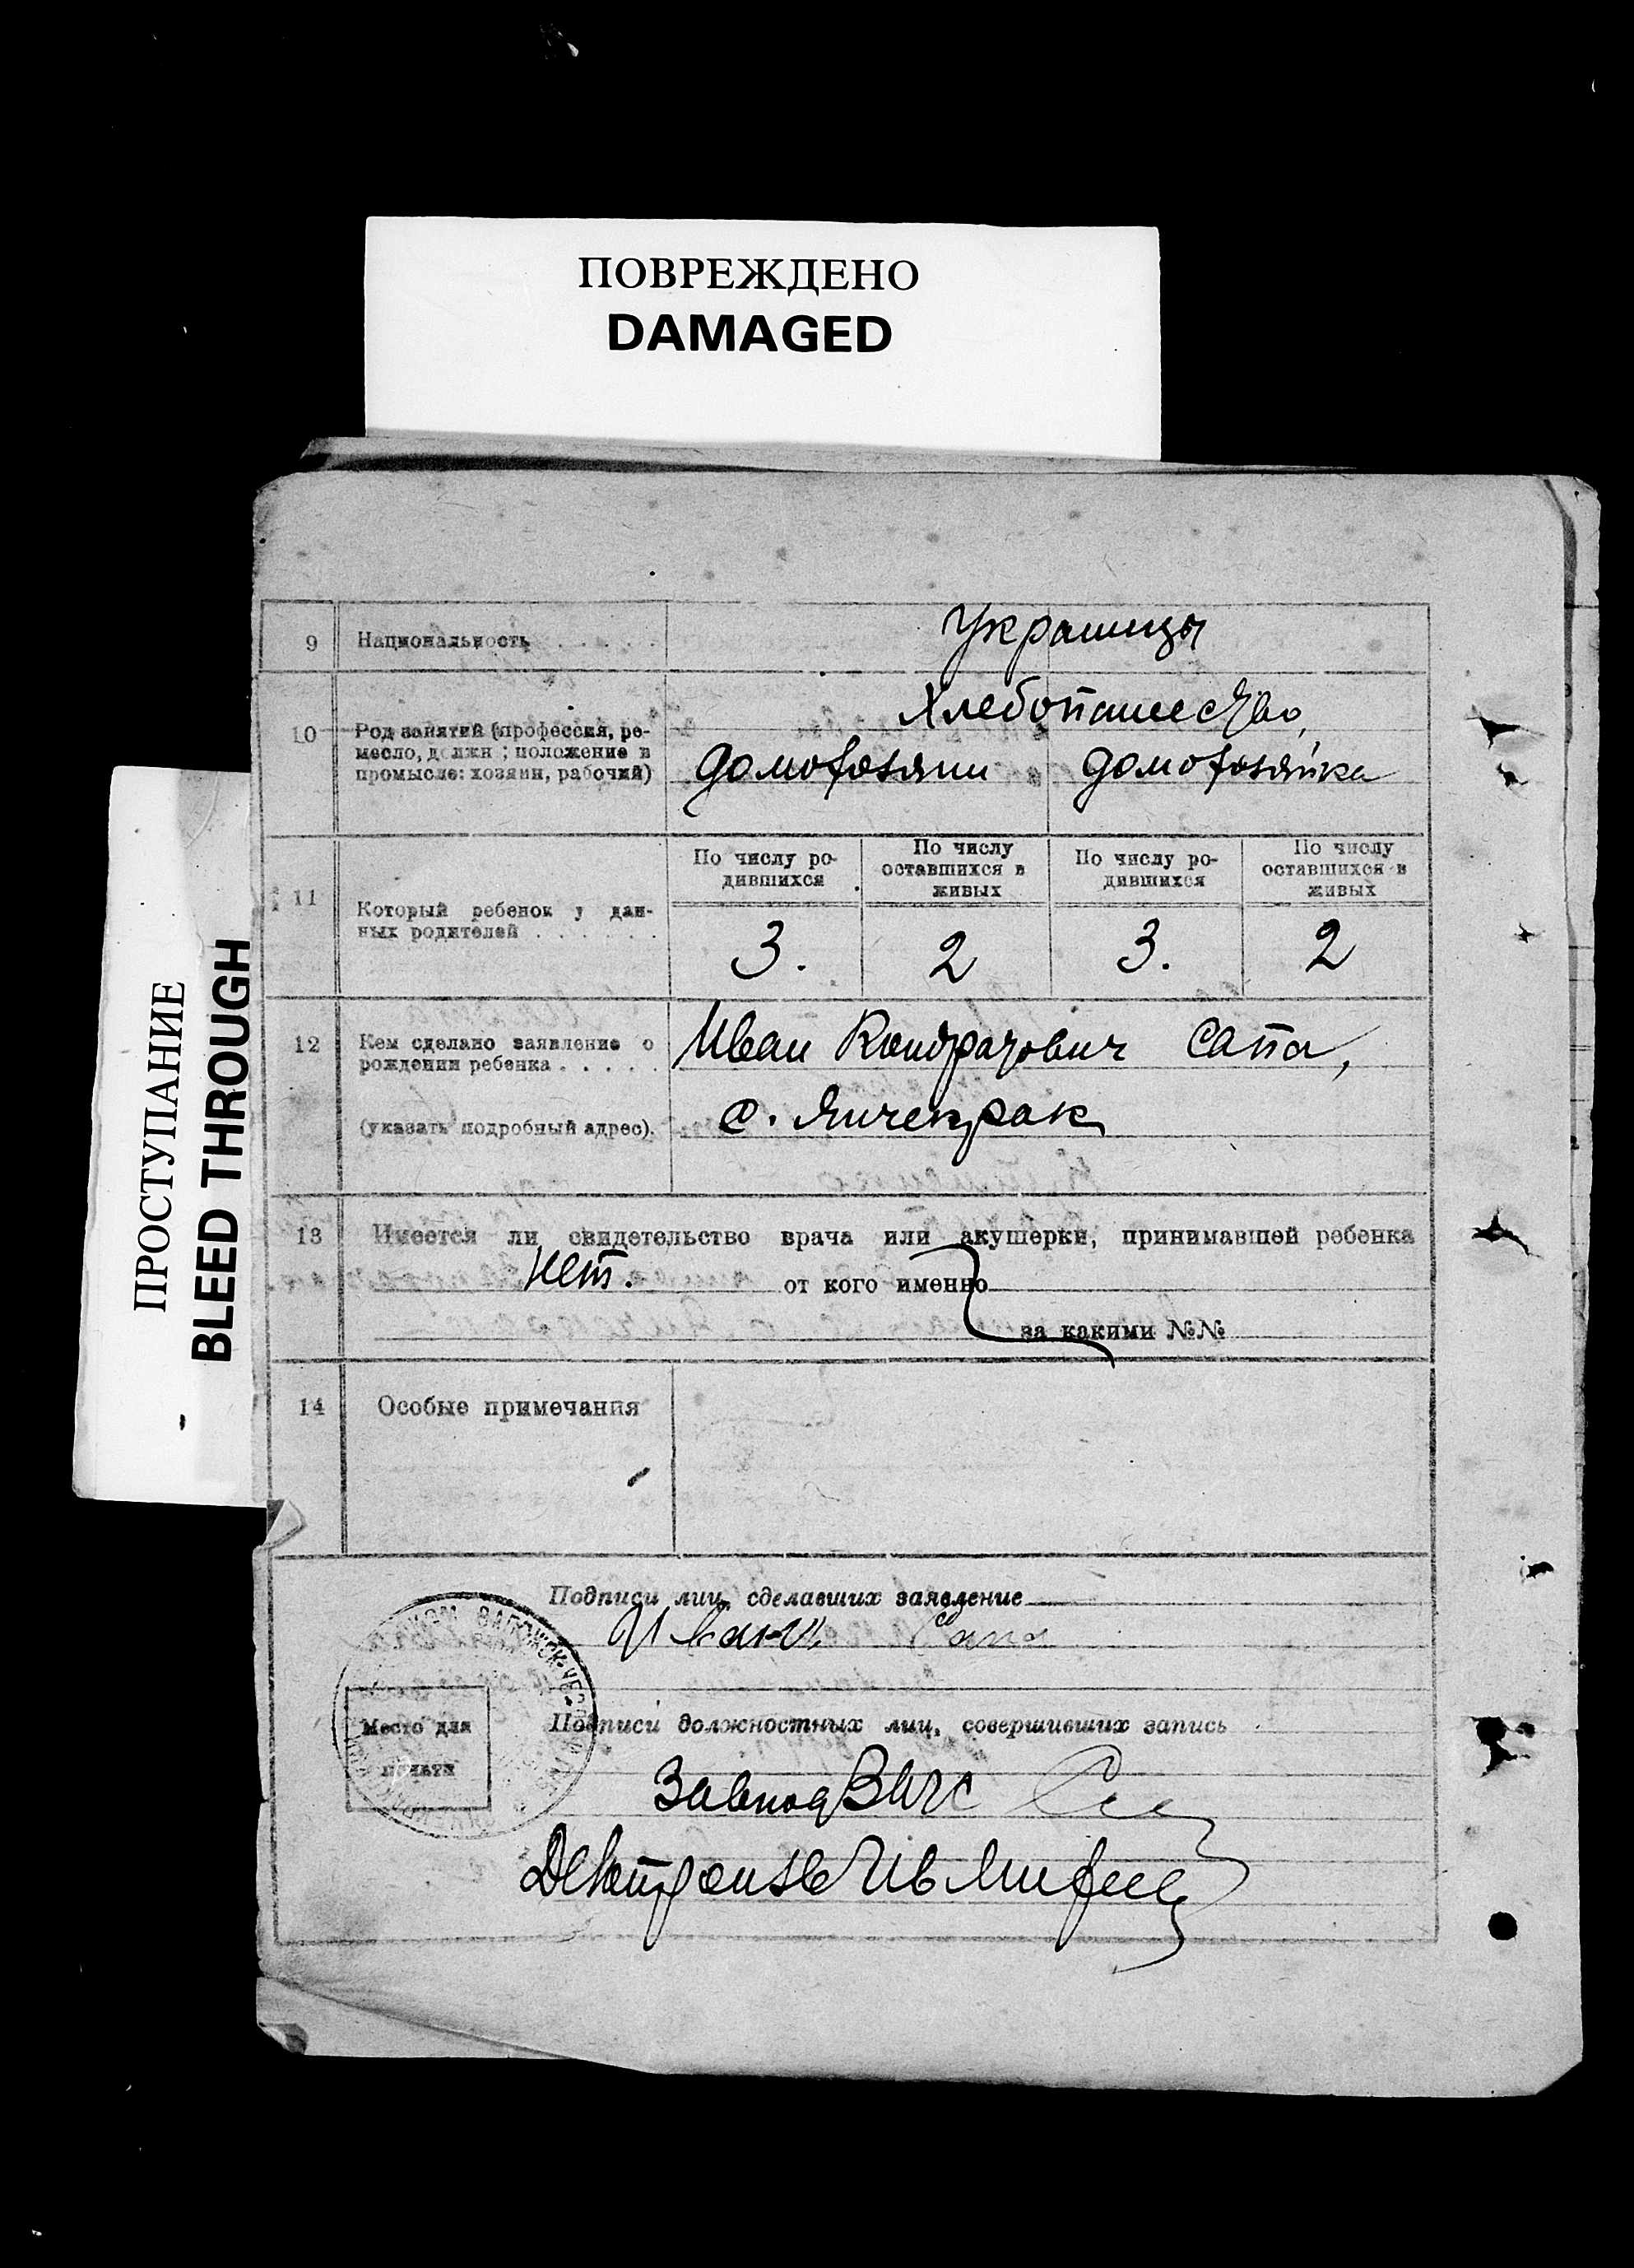 ПОВРЕЖДЕНО
DAMAGED
ПРОСТУПАНИЕ
BLEED THROUGH
9 Национальность . . . . .
Украинцы
10 Род занятий (профессия, ре-
месло, должн ; положение в
промысле: хозяин, рабочий)
Хлебопашество,
домохозяин домохозяйка
11 Который ребенок у дан-
ных родителей . . . . . .
По числу ро-
дившихся
По числу
оставшихся в
живых
По числу ро-
дившихся
По числу
оставшихся в
живых
3. 2 3. 2
12 Кем сделано заявление о
рождении ребенка . . . . .
(указать подробный адрес).
Иван Кондратович Сапа,
с. Янчекрак
13 Имеется ли свидетельство врача или акушерки, принимавшей ребенка
Нет. от кого именно
за какими №№
14 Особые примечания
Подписи лиц, сделавших заявление
Иван Сапа
Место для
печати
Подписи должностных лиц, совершивших запись